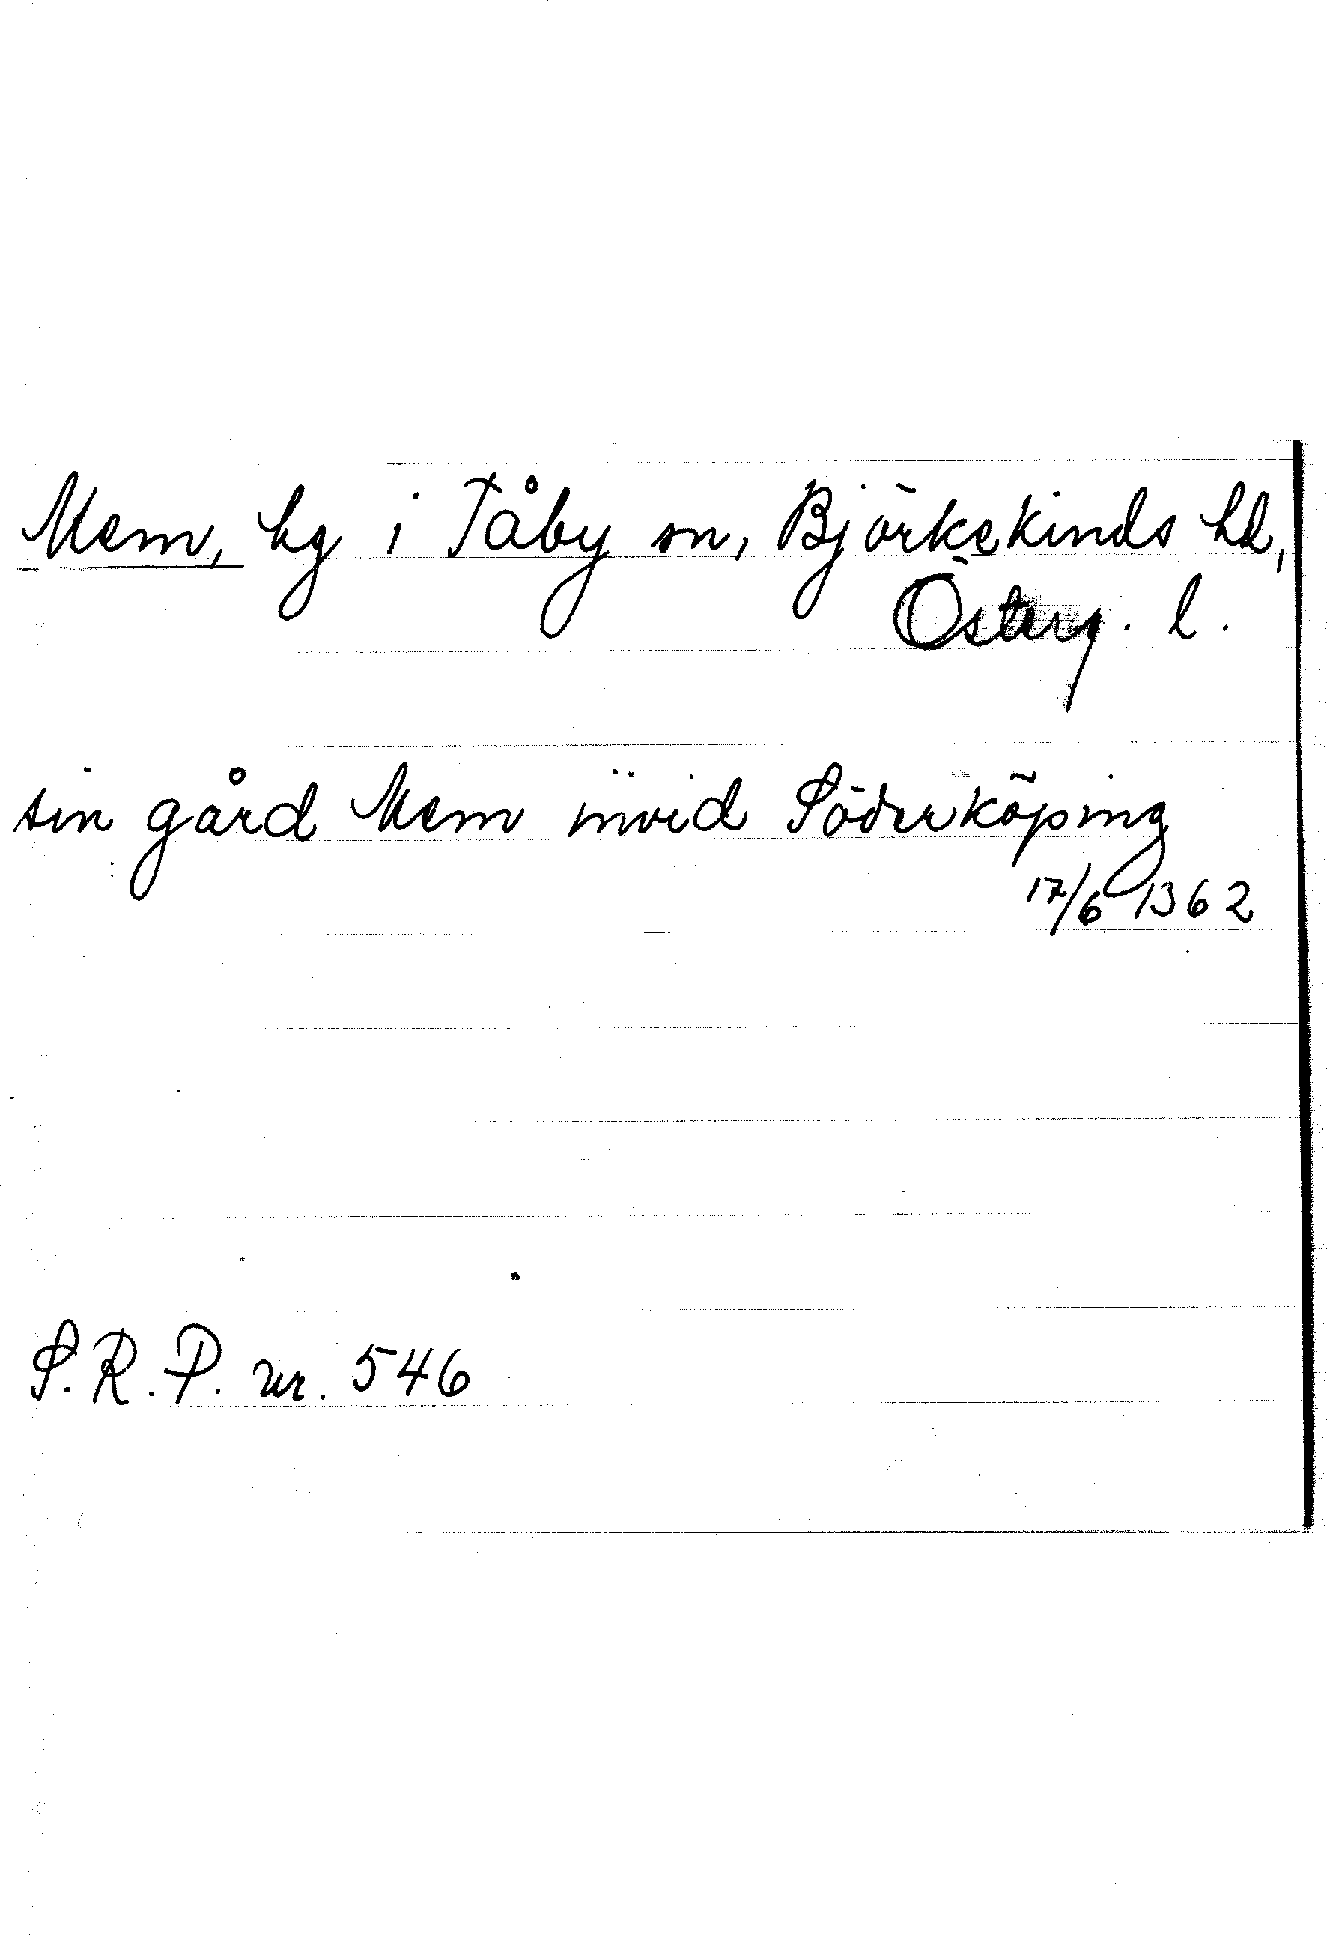 Mem, hg i Tåby sn, Björkekinds hd,
Österg. l.
sin gård Mem invid Söderköping
17/6 1362
S. R. P. nr. 546